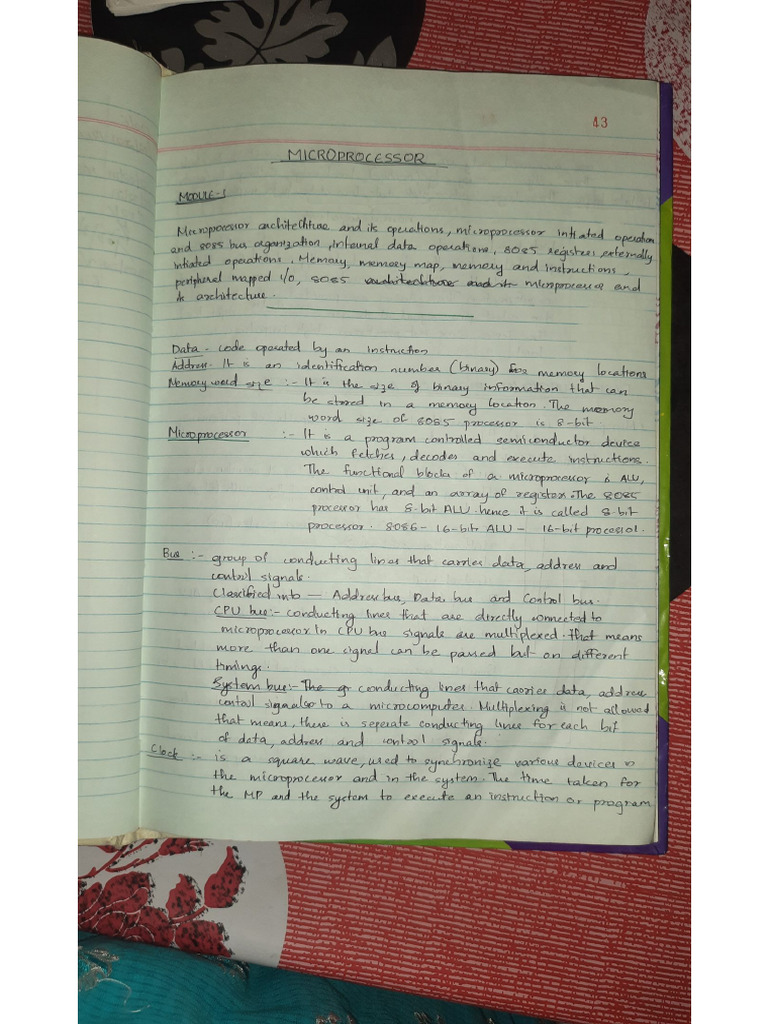 43
MICROPROCESSOR
MODULE-1
Microprocessor architechture and its operations, microprocessor intiated operation
and 8085 bus organization, internal data operations, 8085 registers, externally
intiated operations, Memory, memory map, memory and instructions,
peripheral mapped I/O, 8085 microprocessor and
its architecture.
Data - code operated by an instruction
Address - It is an identification number (binary) for memory locations
Memory word size :- It is the size of binary information that can
be stored in a memory location. The memory
word size of 8085 processor is 8-bit
Microprocessor :- It is a program controlled semiconductor device
which fetches, decodes and execute instructions.
The functional blocks of a microprocessor is ALU,
control unit, and an array of registers. The 8085
processor has 8-bit ALU. hence it is called 8-bit
processor. 8086 - 16-bit ALU - 16-bit processor.
Bus :- group of conducting lines that carries data, address and
control signals.
Classified into - Address bus, Data bus and Control bus.
CPU bus:- conducting lines that are directly connected to
microprocessor. In CPU bus signals are multiplexed. that means
more than one signal can be passed but on different
timings.
System bus:- The gr conducting lines that carries data, address
control signals to a microcomputer. Multiplexing is not allowed
that means, there is seperate conducting lines for each bit
of data, address and control signals.
Clock :- is a square wave, used to synchronize various devices in
the microprocessor and in the system. The time taken for
the MP and the system to execute an instruction or program